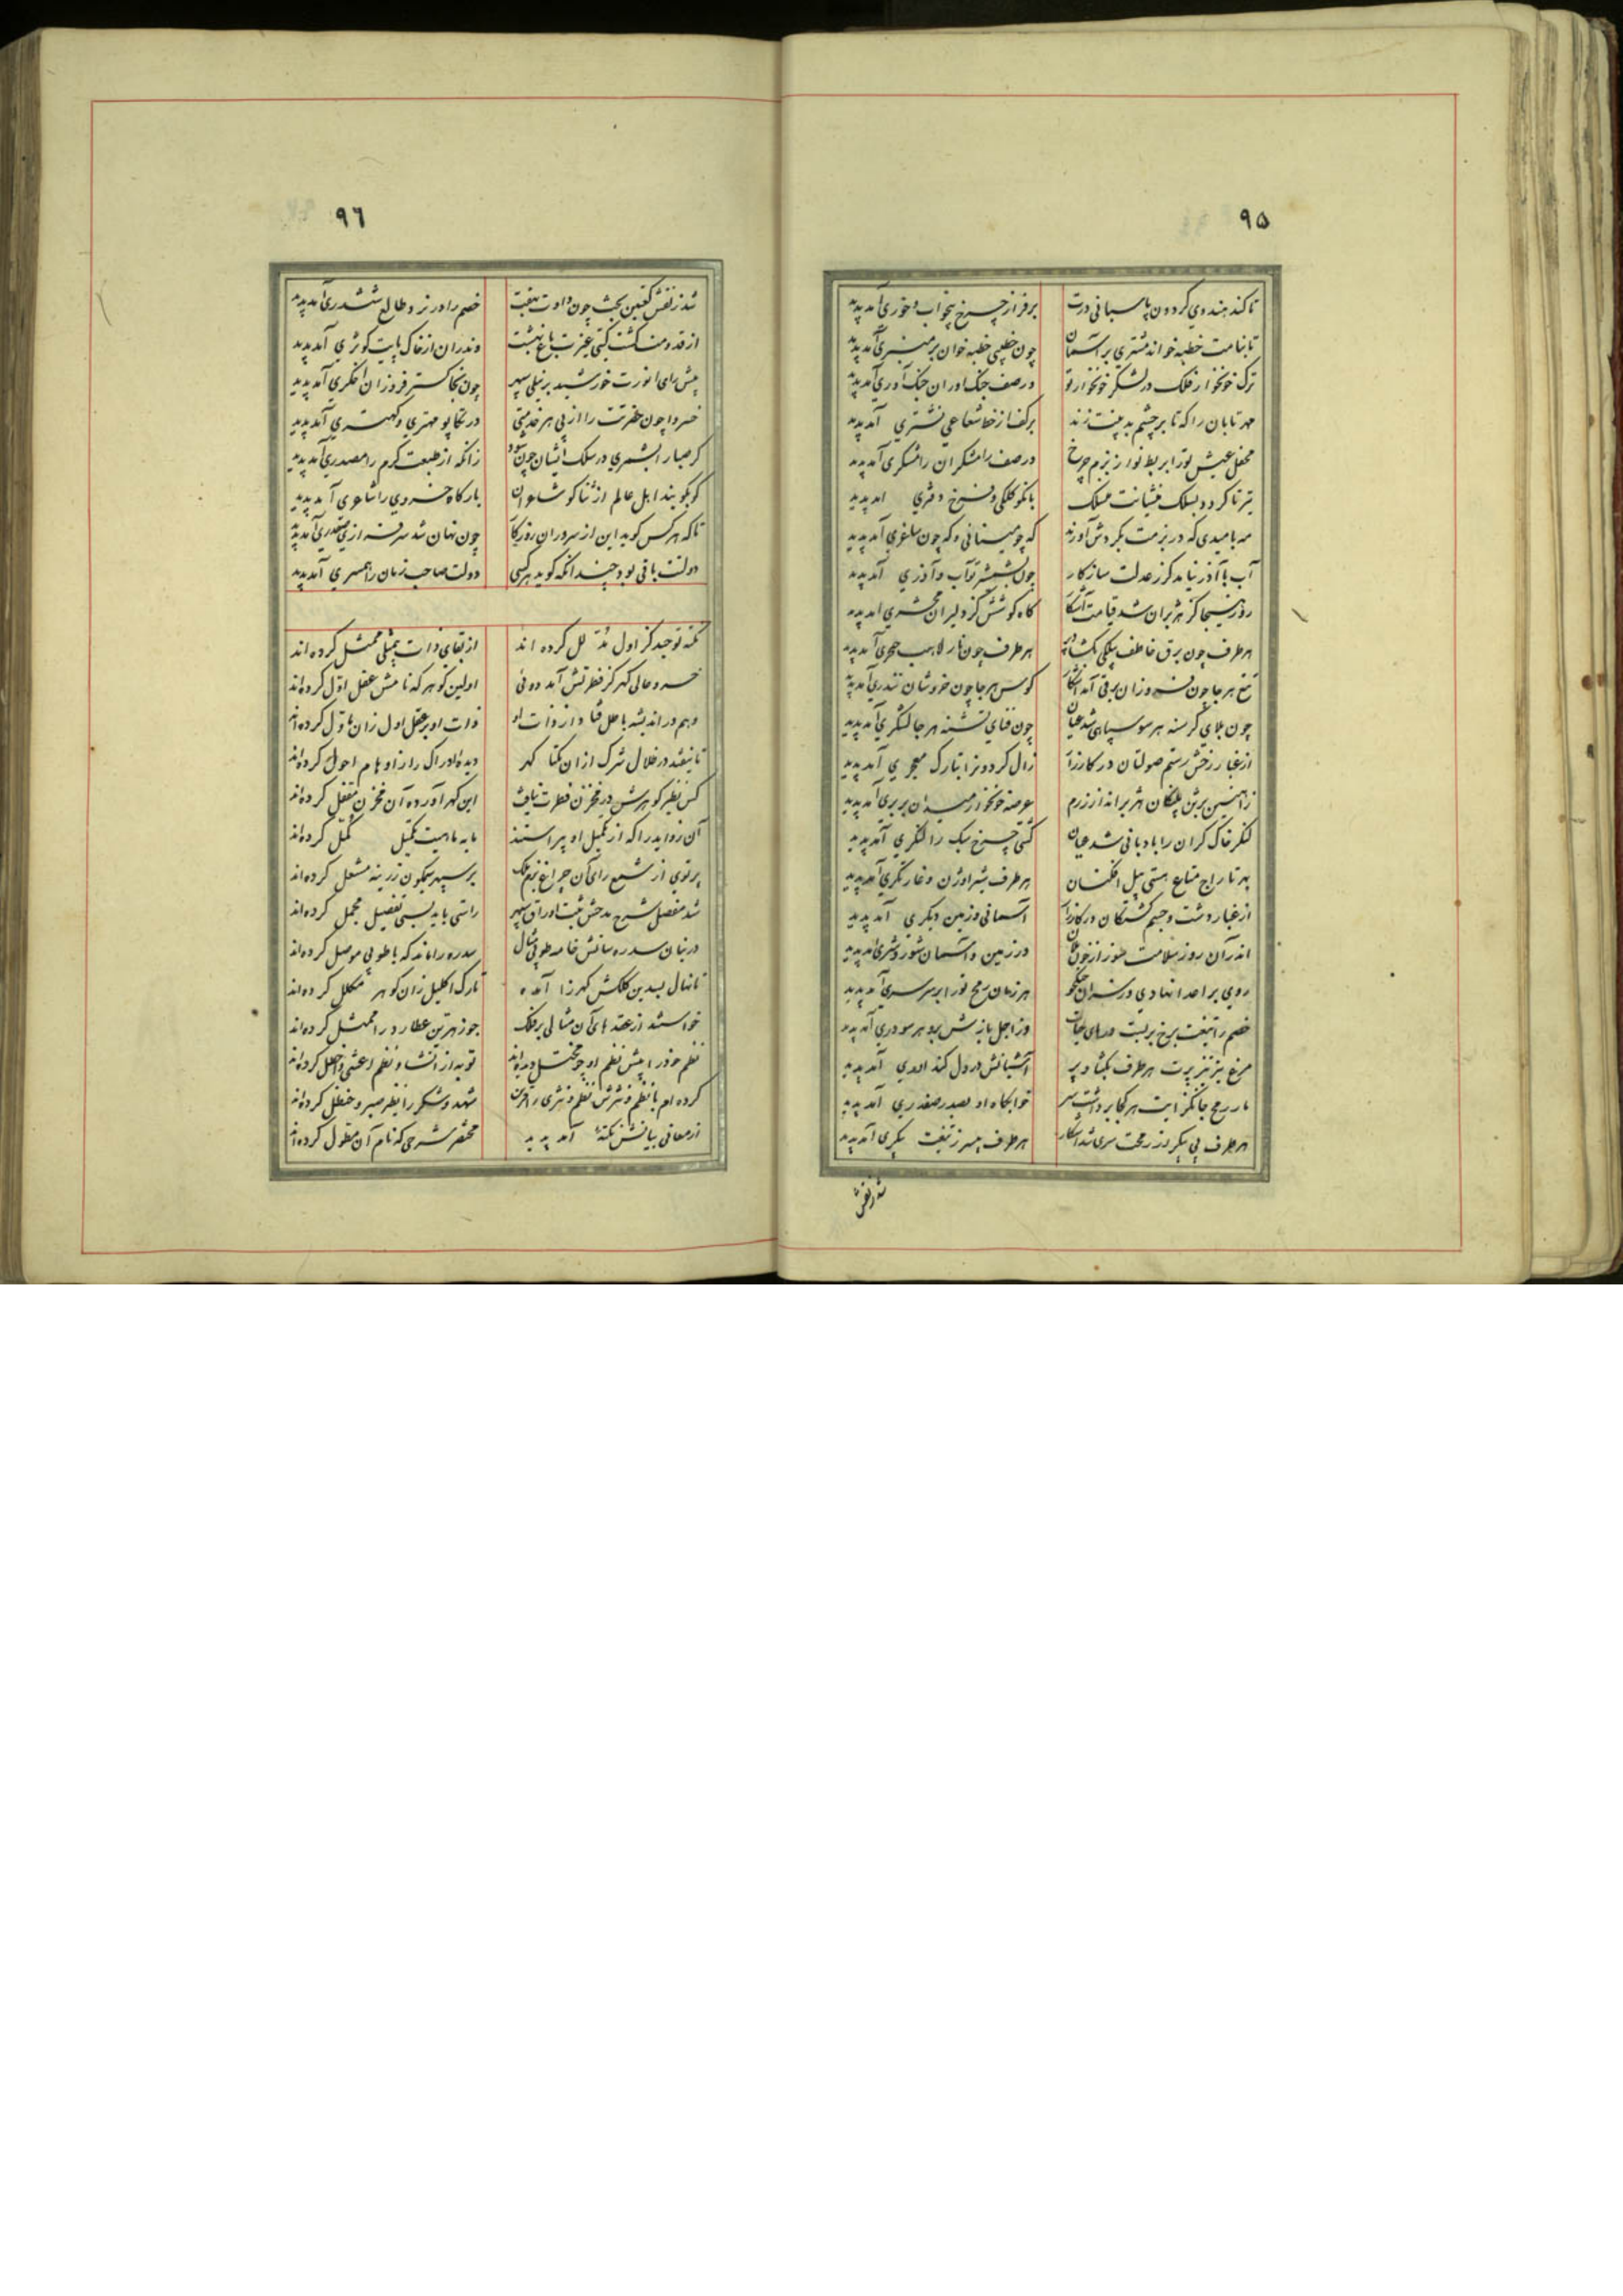 ۹۵
تا کند هندوی کردون پاسبانی درت برفراز چرخ بیخواب و خوری آمد پدید
تا بنامت خطبه خواند مشتری بر آسمان چون خطیبی خطبه خوان بر منبری آمد پدید
ترک خونخوار فلک در لشکر خونخوار تو در صف جنک اوران جنک آوری آمد پدید
مهر تابان را که تا بر چشم بدبینت زند برکف از خط شعاعی نشتری آمد پدید
محفل عیش تورا بربط نواز بزم چرخ در صف رامشکران رامشکری آمد پدید
تیر تا کردد بسلک منشیانت منسلک با نکو کلکی و فرخ دفتری امد پدید
مه بامیدی که در بزمت بکردش آورند که چو مینائی و که چون ساغری آمد پدید
آب با آذر نیامد کر ز عدلت سازکار چون بشمشیر تو آب و آذری آمد پدید
روز هیجا کز هژبران شد قیامت آشکار کاه کوشش کز دلیران محشری امد پدید
هر طرف چون برق خاطف بیلکی بکشاد هر طرف چون نار لاهب خنجری آمد پدید
تیغ هر جا چون فروزان برقی آمد آشکار کوس هر جا چون خروشان تندری آمد پدید
چون بلای کرسنه هر سو سپاهی شد عیان چون فنای تشنه هر جا لشکری آمد پدید
از غبار رخش رستم صولتان در کارزار زال کردون را بتارک معجری آمد پدید
زاهنین برتن پلنکان هژبر انداز رزم عرصه خونخوار میدان بربری آمد پدید
لنکر خاک کران را بادبانی شد عیان کشتی چرخ سبک را لنکری آمد پدید
بهر تاراج متاع هستی پیل افکنان هر طرف شیر اوژن و غارتکری آمد پدید
از غبار دشت و جسم کشتکان در کارزار آسمانی و زمین دیکری آمد پدید
اندر آن روز سلامت سوز از خون در زمین و آسمان شور و شری امد پدید
روی بر اعدا نهادی و ز سران جنکجو هر زمان رمح تورا بر سر سری آمد پدید
خصم را تیغت برخ بربست درهای حیات وز اجل بازش بهر سو دری آمد پدید
مرغ تیز تیر پرت هر طرف بکشاد پر آشیانش در دل کند اوری آمد پدید
مار رمح جانکزایت هر کجا برداشت سر خوابکاه او بصدر صفدری آمد پدید
هر طرف بی پیکر از رمحت سری شد آشکار هر طرف بیسر ز تیغت پیکری آمد پدید
شد ز نقش
۹۶
شد ز نقش کعبتین بخت چون داوت بهفت خصم را در نرد طالع ششدری آمد پدید
از قدومت کشت کیتی غیرت باغ بهشت وندران از خاک پایت کوثری آمد پدید
پیش رای انورت خورشید بر نیلی سپهر چون بخاکستر فروزان اخکری آمد پدید
خسروا چون حضرتت را از پی هر خدمتی در تکاپو مهتری و کهتری آمد پدید
کر صبا را بشمری در سلک ایشان چون سزد زانکه از طبعت کرم را مصدری آمد پدید
کو بکویند اهل عالم از ثنا کو شاعران بارکاه خسروی را شاعری آمد پدید
تا که هر کس کوید این از سروران روزکار چون نهان شد سرفراز پی صفدری آمد پدید
دولتت باقی بود چندانکه کوید هر کسی دولت صاحب زمان را همسری آمد پدید
نکته توحید کز اول مدلل کرده اند از بقای ذات بیمثلی ممثل کرده اند
خسرو عالی کهر کز فطرتش آمد دوئی اولین کوهر که نامش عقل اول کرده‌اند
وهم در اندیشه با حل قفا داز ذات او ذات او بر عقل اول زان ماول کرده‌اند
تا نیفتد در ظلال شرک از ان یکتا کهر دیده ادراک را ز اوهام احول کرده‌اند
کس نظیر کوهرش در مخزن فطرت نیافت این کهر آورده آن مخزن مقفل کرده‌اند
آن زواید را که از تکمیل او پیراستند مایه ماهیت تکمیل کمل کرده‌اند
پرتوی از شمع رای آن چراغ بزم ملک بر سپهر نیلکون زرینه مشعل کرده‌اند
شد مفصل شرح مدحش ثبت اوراق سپهر راستی باید بسی تفصیل مجمل کرده‌اند
در بنان سدره سانش خامه طوبی مثال سدره را ماند که با طوبی موصل کرده‌اند
تا نهال بسدین کلکش کهرزا آمده تارک اکلیل زان کوهر مکلل کرده‌اند
خواستند از عقدهای آن مثالی بر فلک جوزهر بین عطارد را ممثل کرده‌اند
نظم خود را پیش نظم او چو مختل دیده‌اند توبه از انشاد نظم اعشی و اخطل کرده‌اند
کرده ام با نظم و نثرش نظم و نثری را قرین شهد و شکر را نظیر صبر و حنظل کرده‌اند
از معانی بیانش نکتهٔ آمد پدید مختصر شرحی که نام آن مطول کرده‌اند